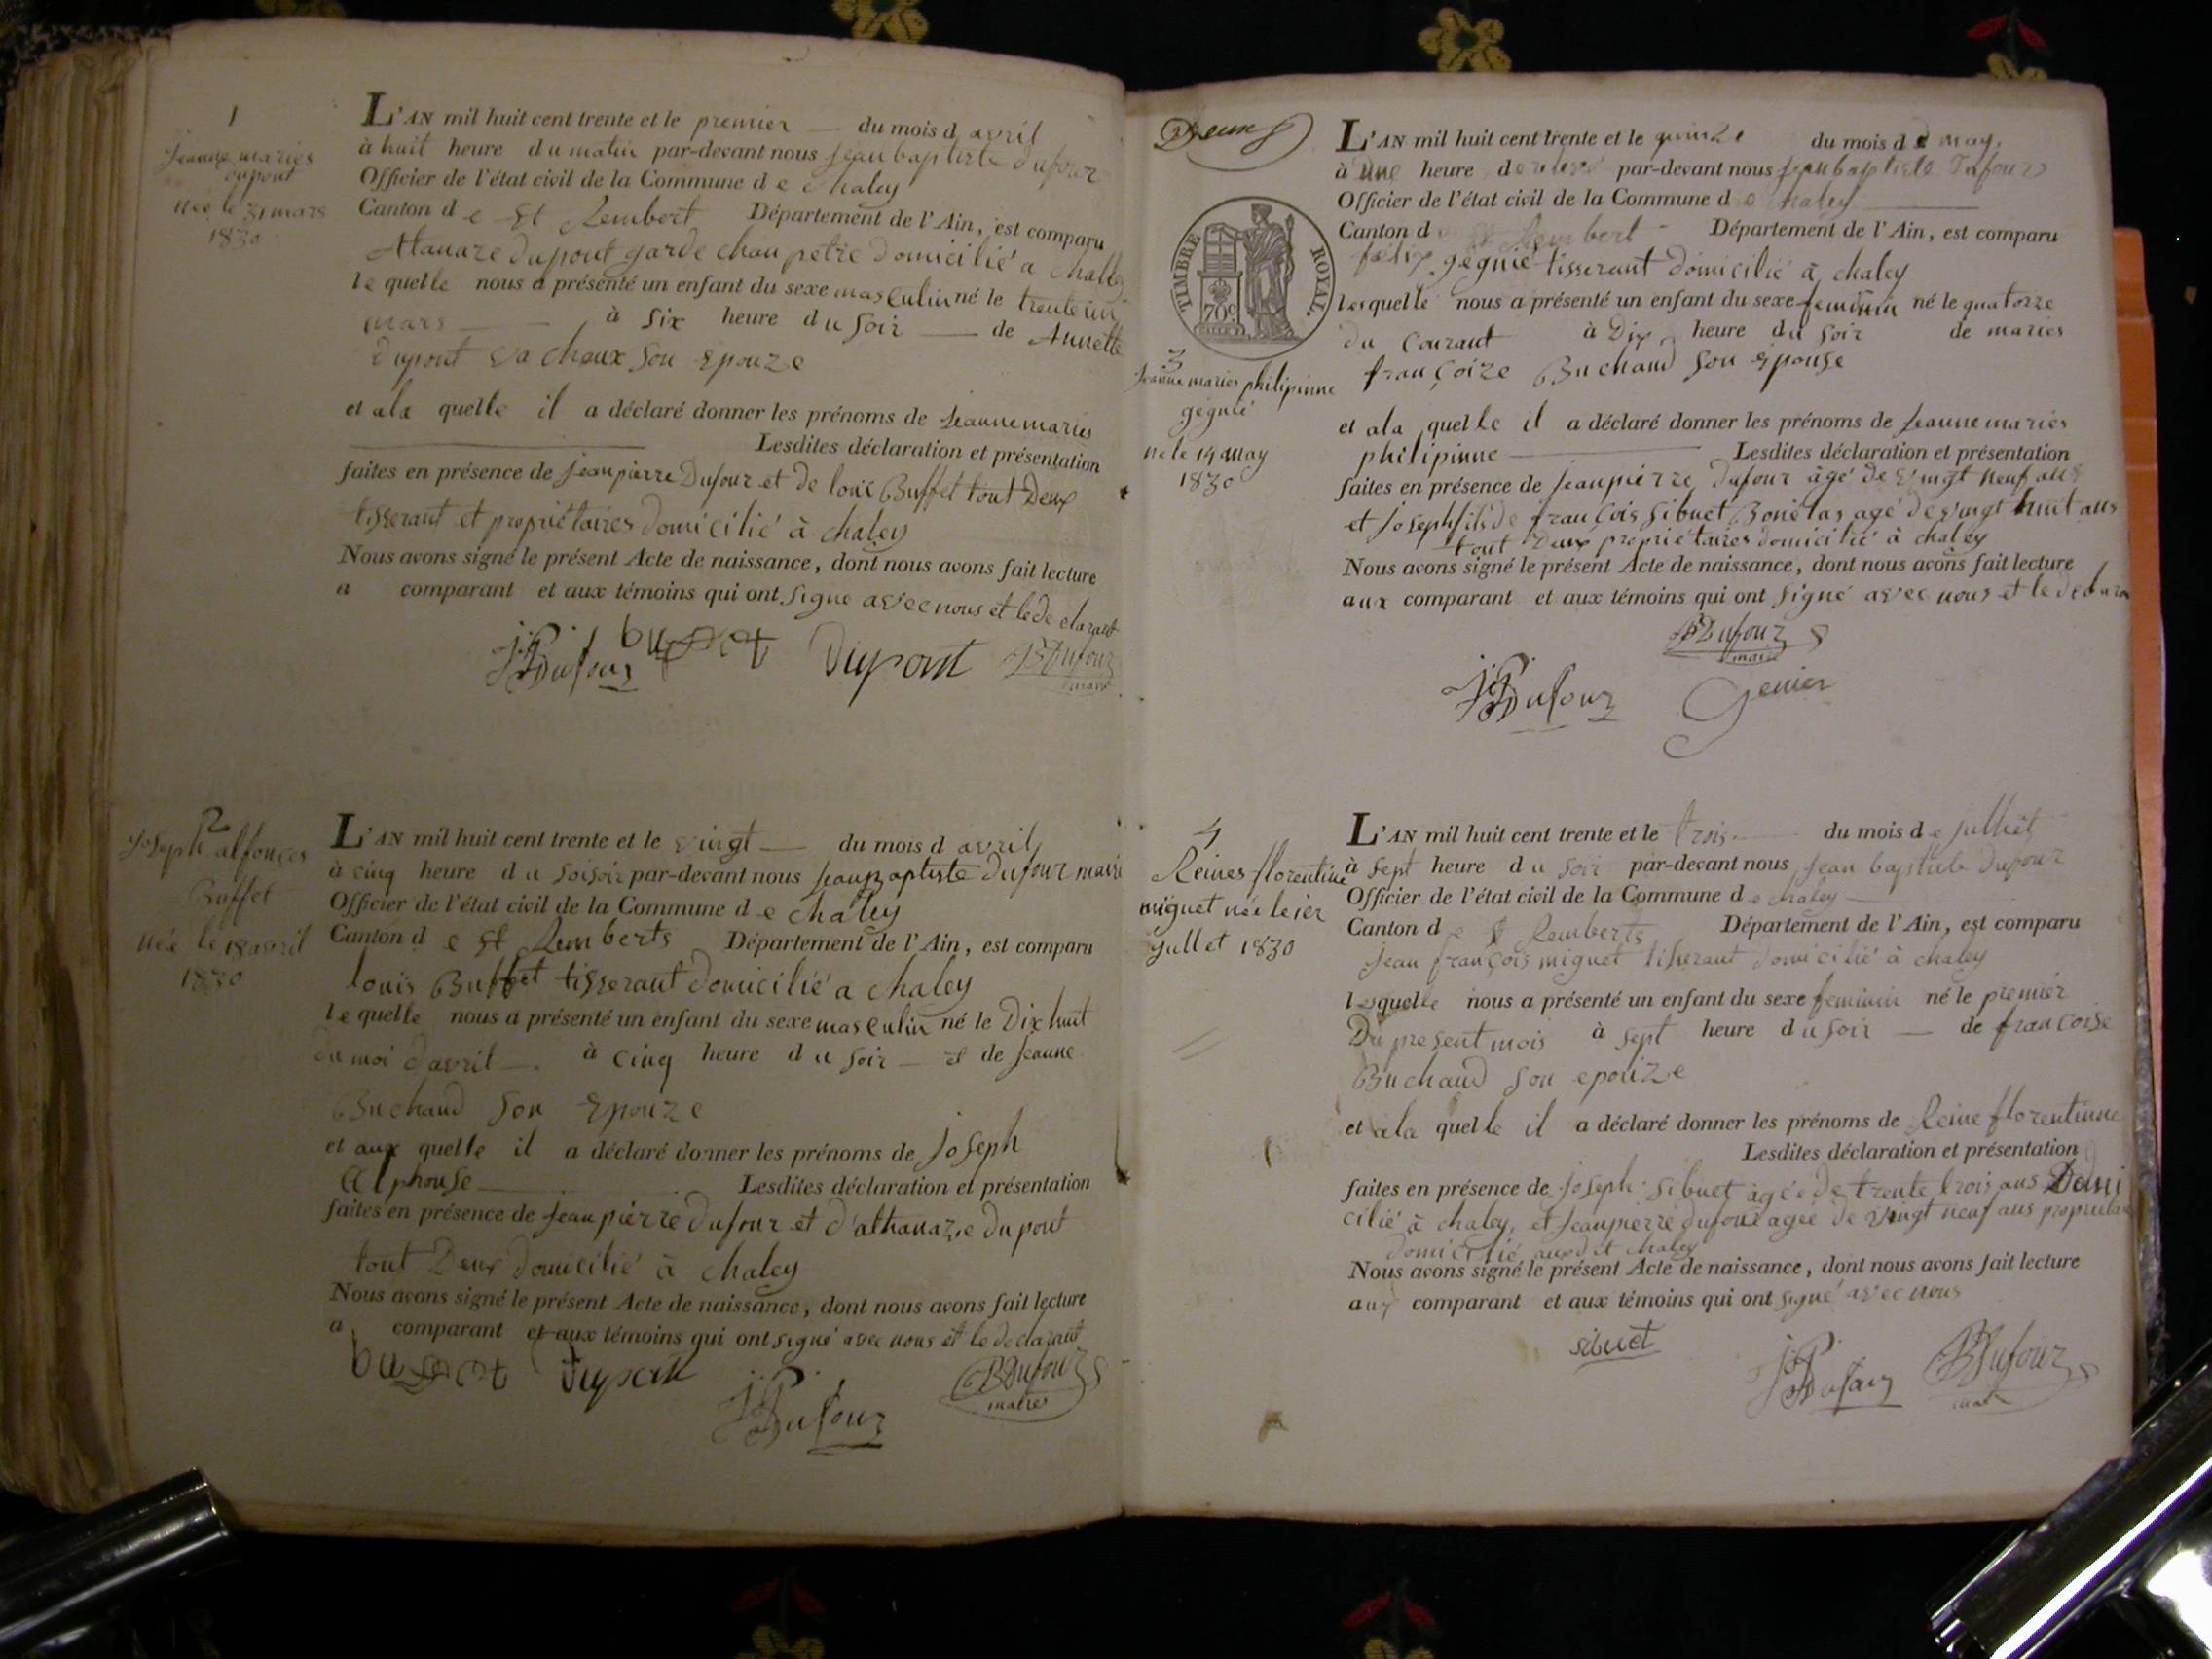 1
Jeanne maries
dupont
née le 31 mars
1830
L'AN mil huit cent trente et le premier du mois d avril
à huit heure du matin par-devant nous jean baptiste dufour
Officier de l'état civil de la Commune d e chaley
Canton d e St Rembert Département de l'Ain, est comparu
Atanaze dupont garde chanpetre domicilié a chaley
le quelle nous a présenté un enfant du sexe masculin né le trente un
mars à six heure du soir de Annette
dupont Vachoux son epouze
et ala quelle il a déclaré donner les prénoms de jeannemaries
Lesdites déclaration et présentation
faites en présence de jeanpierre Dufour et de louis Buffet tout Deux
tisserant et propriétaires domicilié à chaley
Nous avons signé le présent Acte de naissance, dont nous avons fait lecture
a comparant et aux témoins qui ont signe avec nous et le declarant
JP Dufour buffet Dupont JB Dufour
maire
2
Joseph alfonces
Buffet
née le 18 avril
1830
L'AN mil huit cent trente et le vingt du mois d avril
à cinq heure du soisoir par-devant nous jeanbaptiste dufour maire
Officier de l'état civil de la Commune d e chaley
Canton d e St Remberts Département de l'Ain, est comparu
louis Buffet tisserant domicilié a chaley
le quelle nous a présenté un enfant du sexe masculin né le Dix huit
du moi d'avril à cinq heure du soir et de jeanne
Buchaud son epouze
et aux quelle il a déclaré donner les prénoms de joseph
Alphonse Lesdites déclaration et présentation
faites en présence de jeanpierre dufour et d'athanaze dupont
tout Deux domicilié à chaley
Nous avons signé le présent Acte de naissance, dont nous avons fait lecture
a comparant et aux témoins qui ont signé avec nous et le declarant
buffet Dupont JB Dufour
maires
JP Dufour
Deux
TIMBRE ROYAL.
70c
3
Jeanne maries philipinne
gégnié
né le 14 may
1830
L'AN mil huit cent trente et le quinze du mois d e may,
à une heure de par-devant nous jeanbaptiste Dufour
Officier de l'état civil de la Commune d e chaley
Canton d e St Rembert Département de l'Ain, est comparu
félix gégnié tisserant domicilié à chaley
lesquelle nous a présenté un enfant du sexe feminin né le quatorze
du courant à Dix heure du soir de maries
françoize Buchaud son épouse
et ala quelle il a déclaré donner les prénoms de jeanne maries
philipinne Lesdites déclaration et présentation
faites en présence de jeanpierre dufour âgé de vingt neuf ans
et joseph fils de françois sibuet Bonetas agé de vingt huit ans
tout Deux propriétaires domicilié à chaley
Nous avons signé le présent Acte de naissance, dont nous avons fait lecture
aux comparant et aux témoins qui ont signé avec nous et le declara
JB Dufour
maire
JP Dufour Genier
4
Reines florentine
miguet née le ier
jullet 1830
L'AN mil huit cent trente et le trois du mois d e julliet
à sept heure du soir par-devant nous jean baptiste dufour
Officier de l'état civil de la Commune d e chaley
Canton d e St Remberts Département de l'Ain, est comparu
jean françois miguet tisserant domicilié à chaley
lequelle nous a présenté un enfant du sexe feminin né le premier
Du present mois à sept heure du soir de françoise
Buchaud son epouze
et ala quelle il a déclaré donner les prénoms de Reine florentinne
Lesdites déclaration et présentation
faites en présence de joseph sibuet agée de trente trois ans Domi
cilié à chaley, et jeanpierre dufour agée de vingt neuf ans propriétaire
domicilié audit chaley
Nous avons signé le présent Acte de naissance, dont nous avons fait lecture
aux comparant et aux témoins qui ont signé avec nous
sibuet JP Dufour JB Dufour
maire